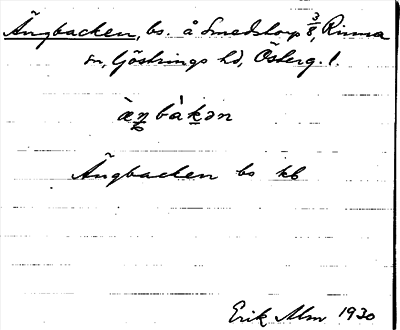 Ängbacken, bs. å Smedstorp 3/8, Rinna
sn, Göstrings hd, Österg. l.
bàkən
Ängbacken bs kb
Erik Alm 1930